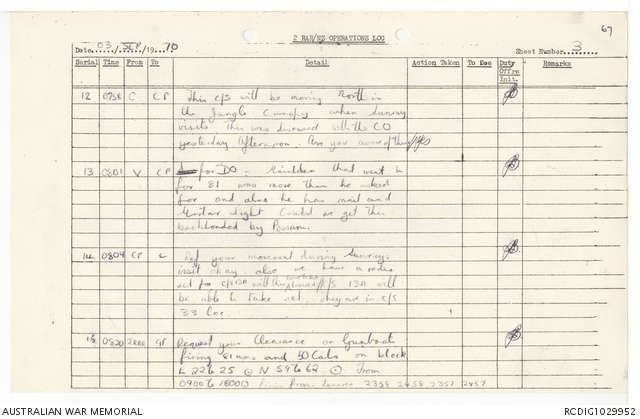 67
2 RAR/NZ OPERATIONS LOG
Date 03 / SEP / 19 70 Sheet Number 3
Serial Time From To Detail Action Taken To See Duty Offrs Init. Remarks
12 0756 C CP This c/s will be moving North in
the Jungle Canopy when Sunray
visits this was discussed with the CO
yesterday Afternoon. Are you aware of this
13 0801 V CP for DO - that went in
for 81 was more than he asked
for and also he has mail and
light Could we get this
backloaded by Possum.
14 0808 CP C Ref your movement during Sunrays
visit okay. also we have a radio
set for c/s 13A will
be able to take set. they are in c/s
33 Loc.
15 0820 GF Request your Clearance on Gunboat
firing 81mm and 50 Cals on block
E 22 to 25 N 59 to 62 From
0900 to 1800 2358 2458 2357 2457
AUSTRALIAN WAR MEMORIAL RCDIG1029952